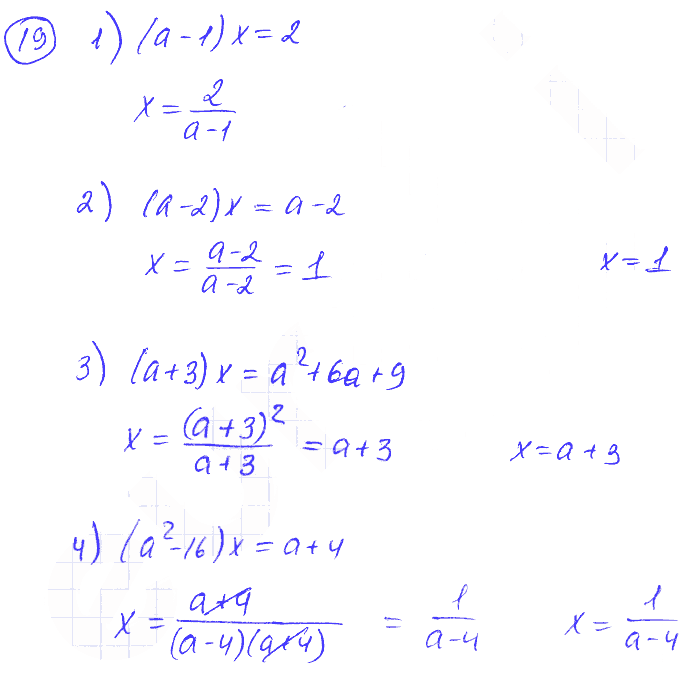 19 1) (a-1)x=2
x = 2/(a-1)
2) (a-2)x = a-2
x = (a-2)/(a-2) = 1 x=1
3) (a+3)x = a²+6a+9
x = (a+3)²/(a+3) = a+3 x=a+3
4) (a²-16)x = a+4
x = (a+4)/((a-4)(a+4)) = 1/(a-4) x = 1/(a-4)